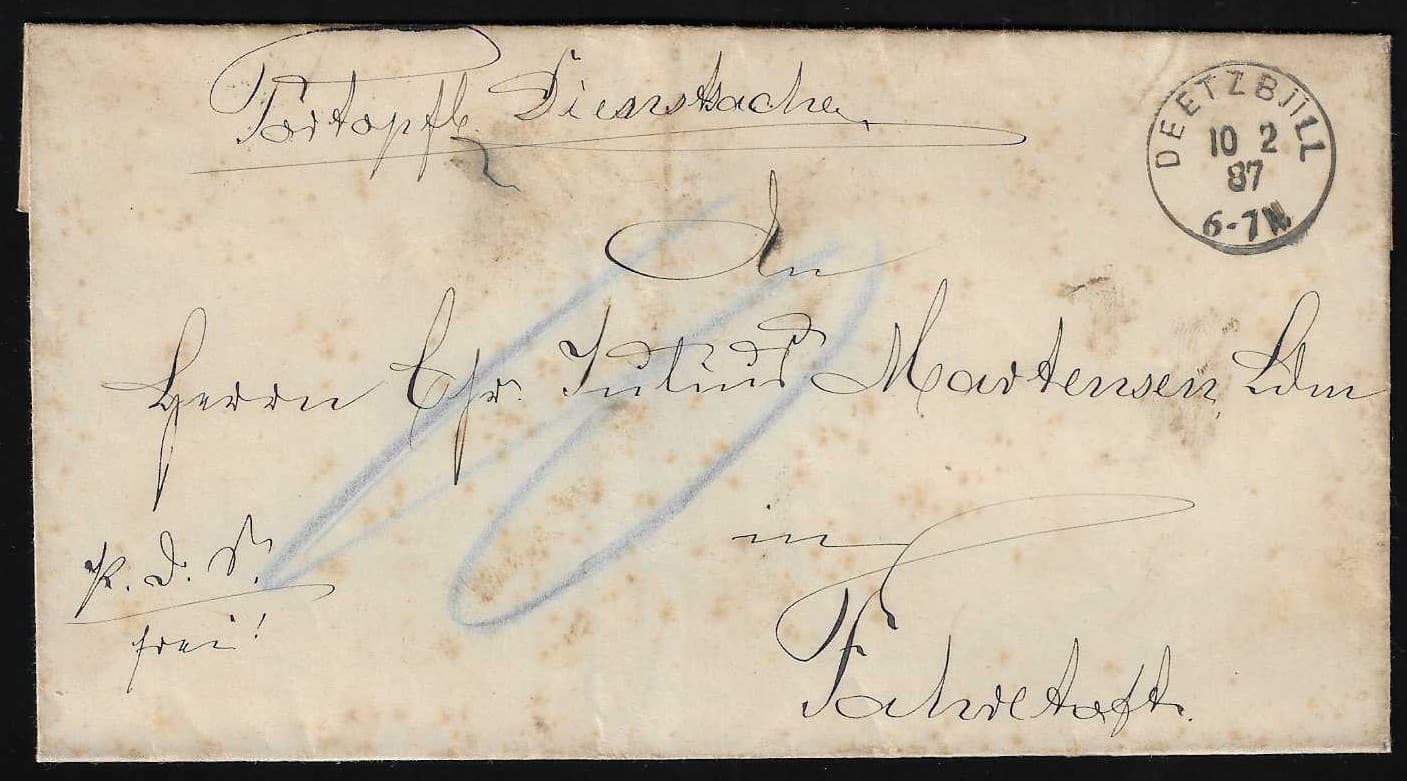 Portopfl. Dienstsache
DEETZBÜLL
10 2
87
6-7N
An
Herrn Chr. Julius Martensen, Ldm
in
Fahretoft.
K. D. S.
frei!
10